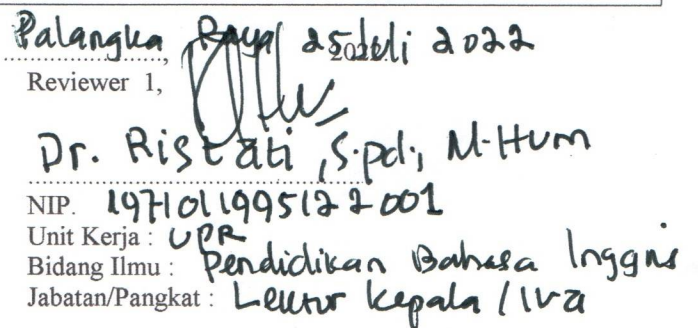 Palangka Raya, 25 Juli 2022
Reviewer 1,
Dr. Ristati, S.pd., M.Hum
NIP. 197101199512 2 001
Unit Kerja : UPR
Bidang Ilmu : Pendidikan Bahasa Inggris
Jabatan/Pangkat : Lektor Kepala / IVa